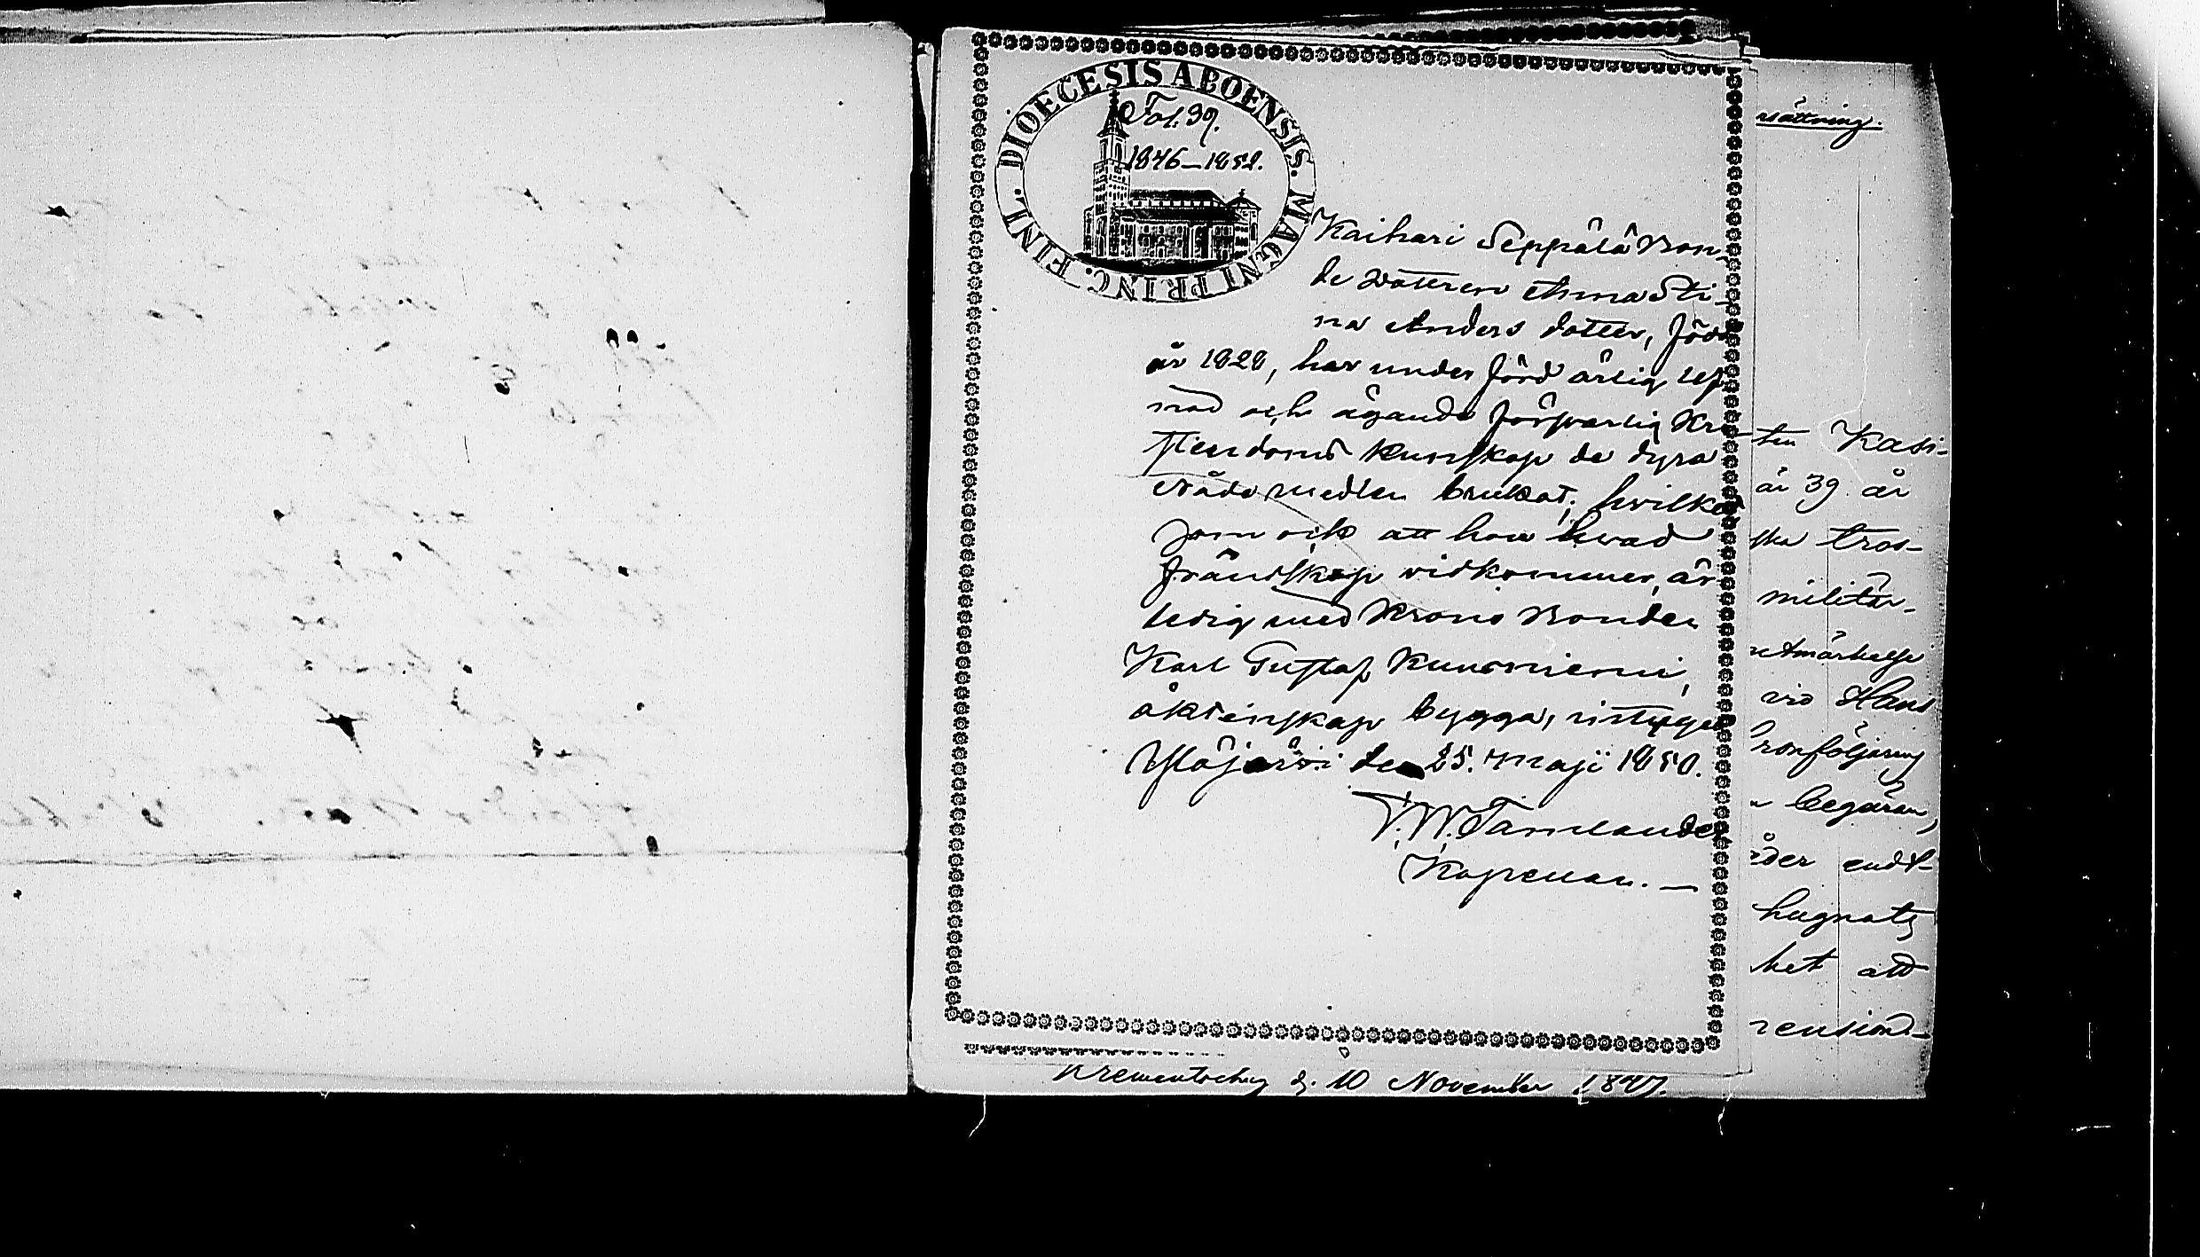 DIOECESIS ABOENSIS. MAGNI PRINC. FINL.
Fol. 39.
1846–1852.
Kaihari Seppälä Bon-
de dotteren Anna Sti-
na Anders dotter, född
år 1828, har under förd ärlig lef-
nad och ägande försvarlig Kri-
stendoms kunskap de dyra
Nåde medlen brukat; hvilket
som ock att hon hvad
frändskap vidkommer, är
ledig med Krono Bonden
Karl Gustaf Kuusniemi,
äktenskap bygga, intygar
Ylöjärvi den 25. Maji 1850.
Kapellan. —
rsättning.
ten Kasi-
är 39 år
ska tros-
militär-
utmärkelse
vid Hans
ronföljaring
n begäran,
hugnats
ket att
Krementschug d. 10 November 1847.